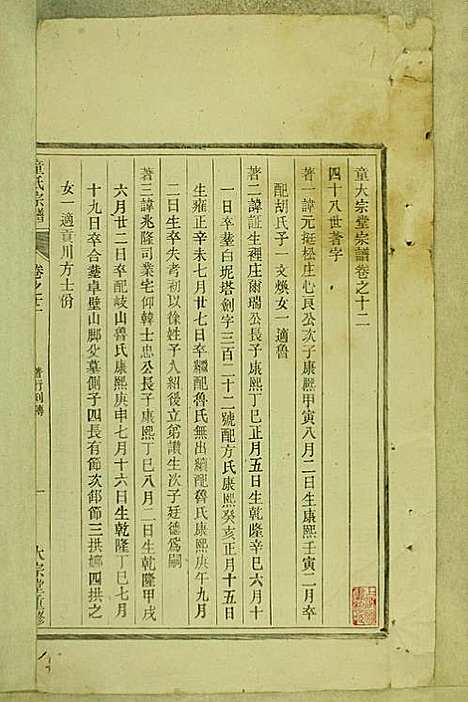 童大宗堂宗譜卷之十二
四十八世著字
著一諱元挺松庄心良公次子康熙甲寅八月二日生康熙壬寅二月卒
配胡氏子一文煥女一適魯
著二諱証生裡庄爾瑞公長子康熙丁巳正月五日生乾隆辛巳六月十
一日卒葬白坭塔劍字三百二十二號配方氏康熙癸亥正月十五日
生雍正辛未七月廿七日卒繼配魯氏無出續配魯氏康熙庚午九月
二日生卒失考初以徐姓子入紹後立弟讚生次子廷德為嗣
著三諱兆隆司業宅仰韓士忠公長子康熙丁巳八月二日生乾隆甲戌
六月廿二日卒配岐山魯氏康熙庚申七月十六日生乾隆丁巳七月
十九日卒合葬卓壁山脚父墓側子四長有節次郶節三拱嫏四拱之
女一適貢川方士份
童氏宗譜
卷之十二
著行列傳
一
大宗堂重修